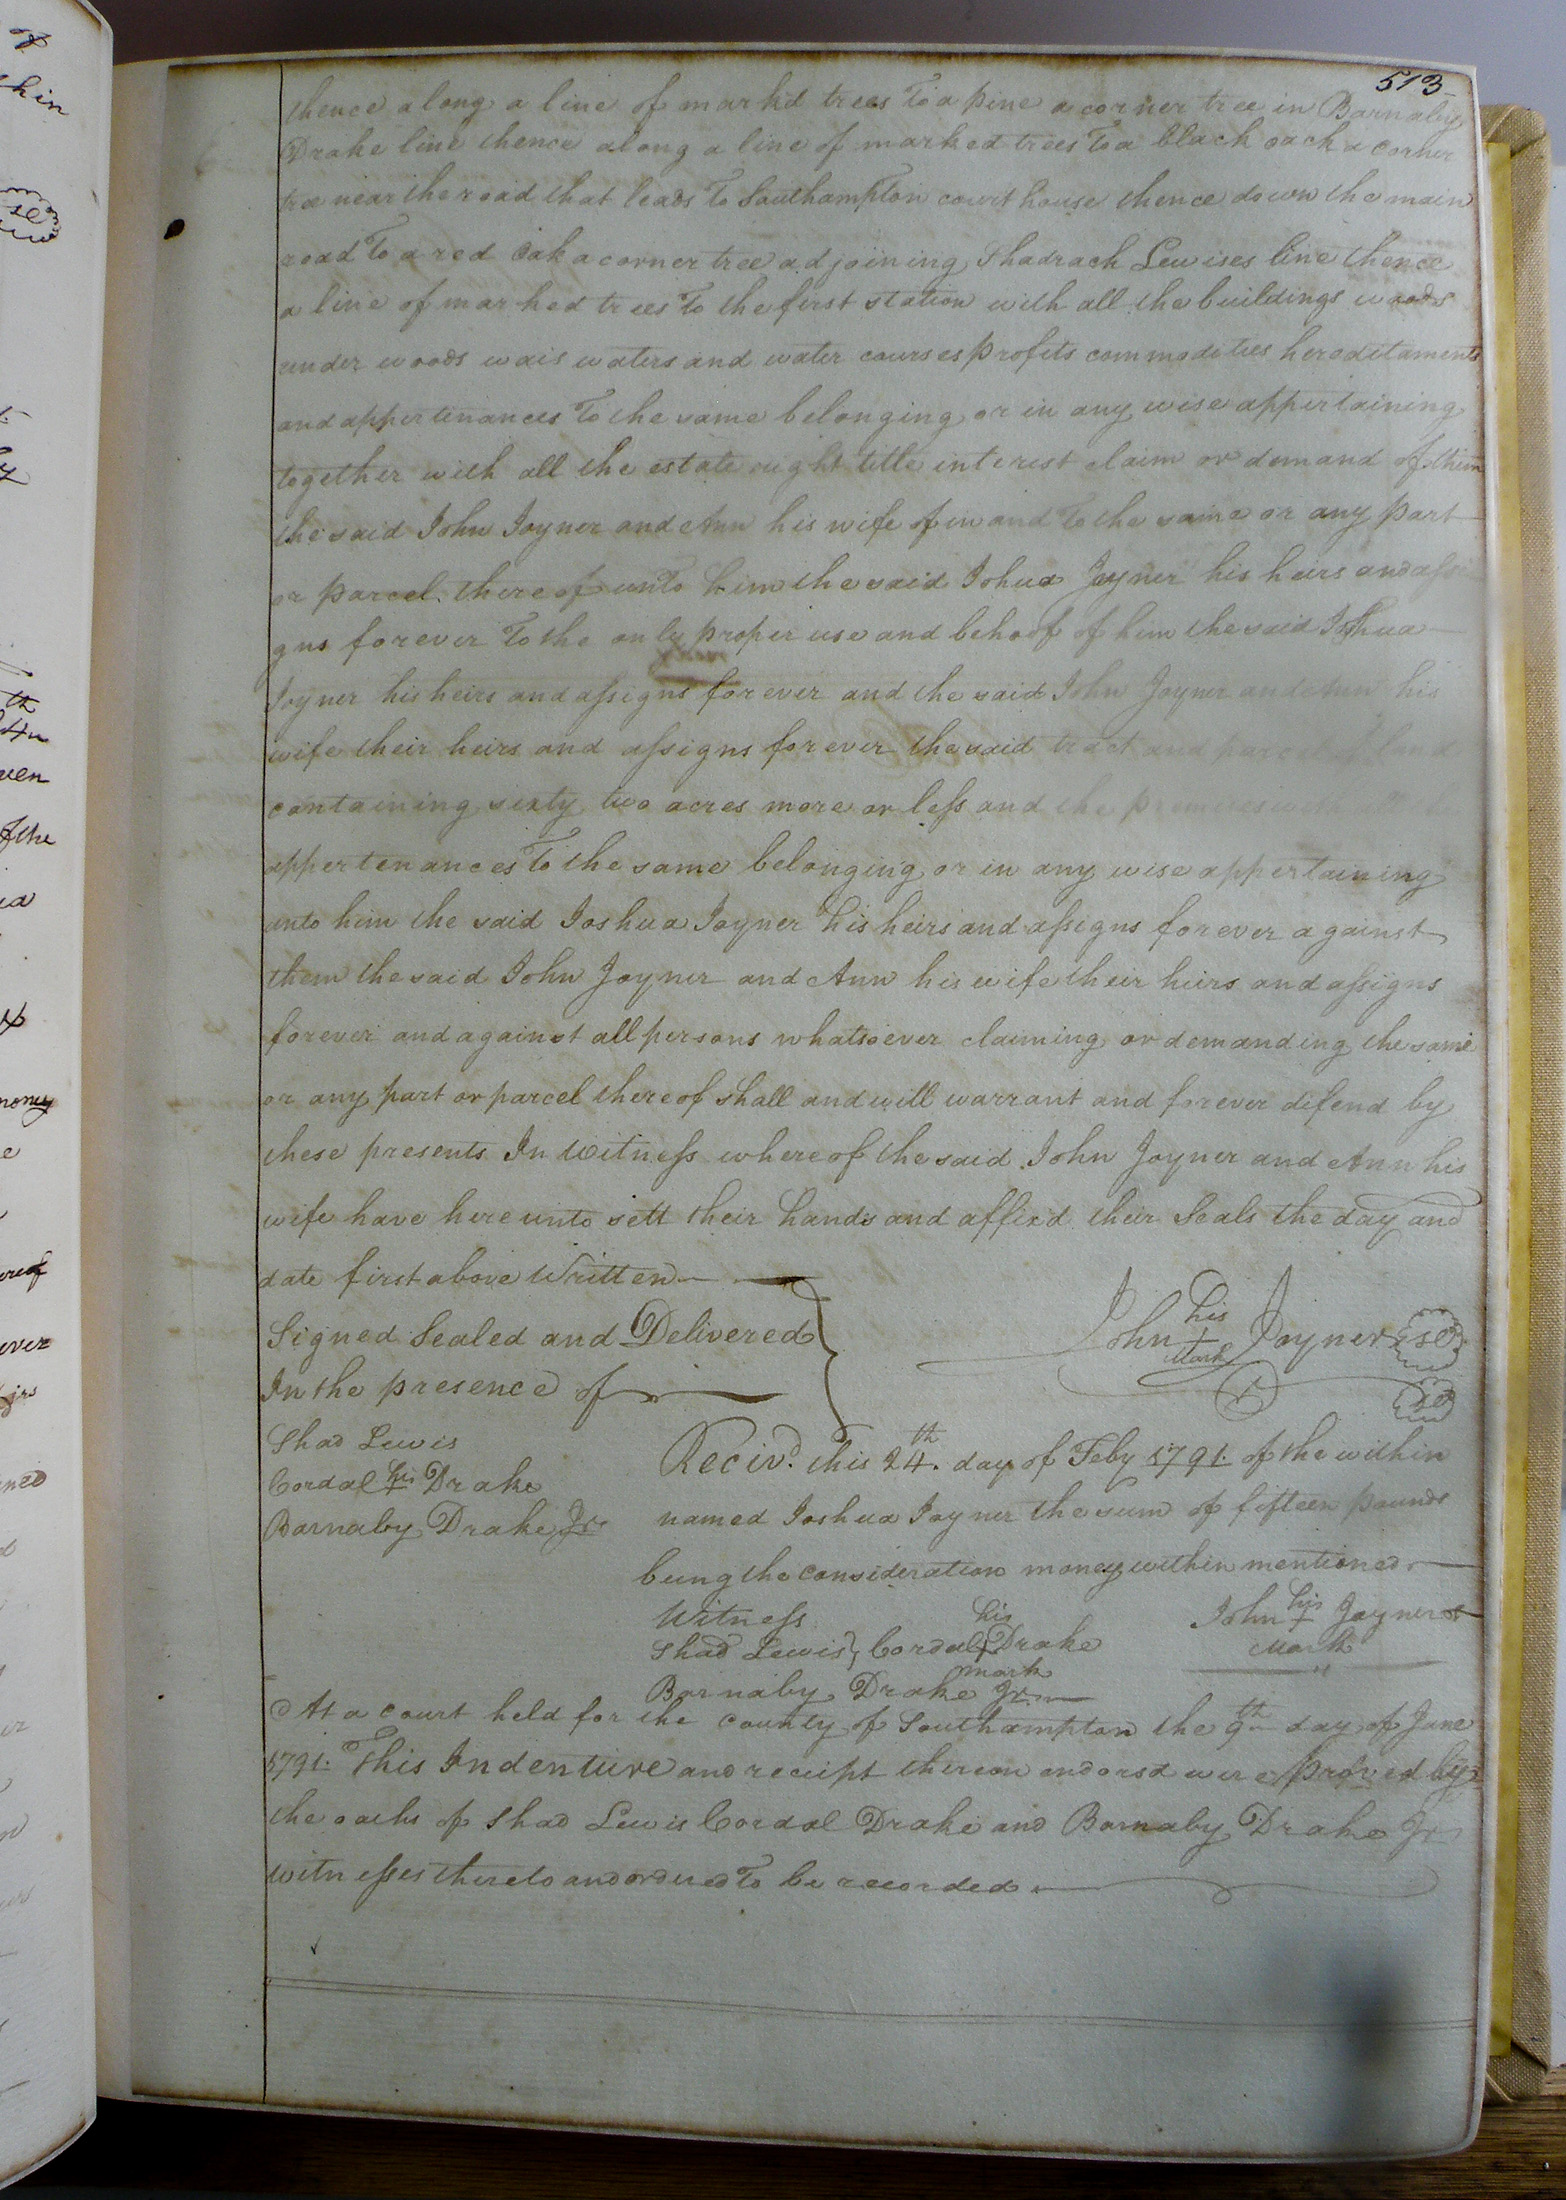 513
thence along a line of markd trees To a pine a corner tree in Barnaby
Drake line thence along a line of marked trees To a black oack a corner
tree near the road that leads To Southampton court house thence down the main
road To a red Oak a corner tree adjoining Shadrach Lewises line thence
a line of marked trees To the first station with all the buildings woods
under woods wais waters and water courses profits commodities hereditaments
and appertinances To the same belonging or in any wise appertaining
together with all the estate right title interest claim or demand of them
the said John Joyner and Ann his wife of in and To the same or any part
or parcel thereof unto him the said Johua Joyner his heirs and assi
gns forever To the only proper use and behoof of him the said Joshua
Joyner his heirs and assigns for ever and the said John Joyner and Ann his
wife their heirs and assigns for ever the said tract and parcel of land
containing sixty two acres more or less and the premises
appertenances To the same belonging or in any wise appertaining
unto him the said Joshua Joyner his heirs and assigns forever against
them the said John Joyner and Ann his wife their heirs and assigns
forever and against all persons whatsoever claiming or demanding the same
or any part or parcel thereof shall and will warrant and forever defend by
these presents In Witness whereof the said John Joyner and Ann his
wife have here unto sett their hands and affixd their Seals the day and
date first above Written
Signed Sealed and Delivered
In the presence of
John his + Mark Joyner se
se
Shad Lewis
Cordal his + Drake
Barnaby Drake Jr.
Recivd. this 24th. day of Feby 1791. of the within
named Joshua Joyner the sum of fifteen pounds
being the consideration money within mentioned
Witness
John his + Mark Joyner
Shad Lewis, Cordal his + mark Drake
Barnaby Drake Jr
At a court held for the county of Southampton the 9th day of June
1791. This Indenture and receipt thereon endorsd were proved by
the oaths of Shad Lewis Cordal Drake and Barnaby Drake Jr
witnesses thereto and ordered To be recorded